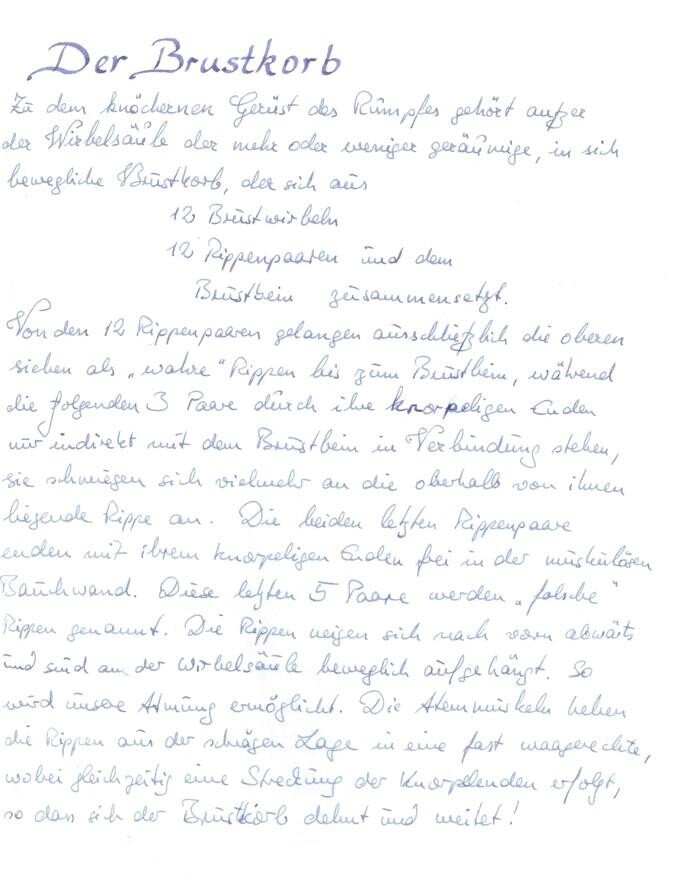 Der Brustkorb
Zu dem knöchernen Gerüst des Rumpfes gehört außer
der Wirbelsäule der mehr oder weniger geräumige, in sich
bewegliche Brustkorb, der sich aus
12 Brustwirbeln
12 Rippenpaaren und dem
Brustbein zusammensetzt.
Von den 12 Rippenpaaren gelangen ausschließlich die oberen
sieben als „wahre" Rippen bis zum Brustbein, während
die folgenden 3 Paare durch ihre knorpeligen Enden
nur indirekt mit dem Brustbein in Verbindung stehen,
sie schmiegen sich vielmehr an die oberhalb von ihnen
liegende Rippe an. Die beiden letzten Rippenpaare
enden mit ihrem knorpeligen Enden frei in der muskulösen
Bauchwand. Diese letzten 5 Paare werden „falsche"
Rippen genannt. Die Rippen neigen sich nach vorn abwärts
und sind an der Wirbelsäule beweglich aufgehängt. So
wird unsere Atmung ermöglicht. Die Atemmuskeln heben
die Rippen aus der schrägen Lage in eine fast waagerechte,
wobei gleichzeitig eine Streckung der Knorpelenden erfolgt,
so dass sich der Brustkorb dehnt und weitet!